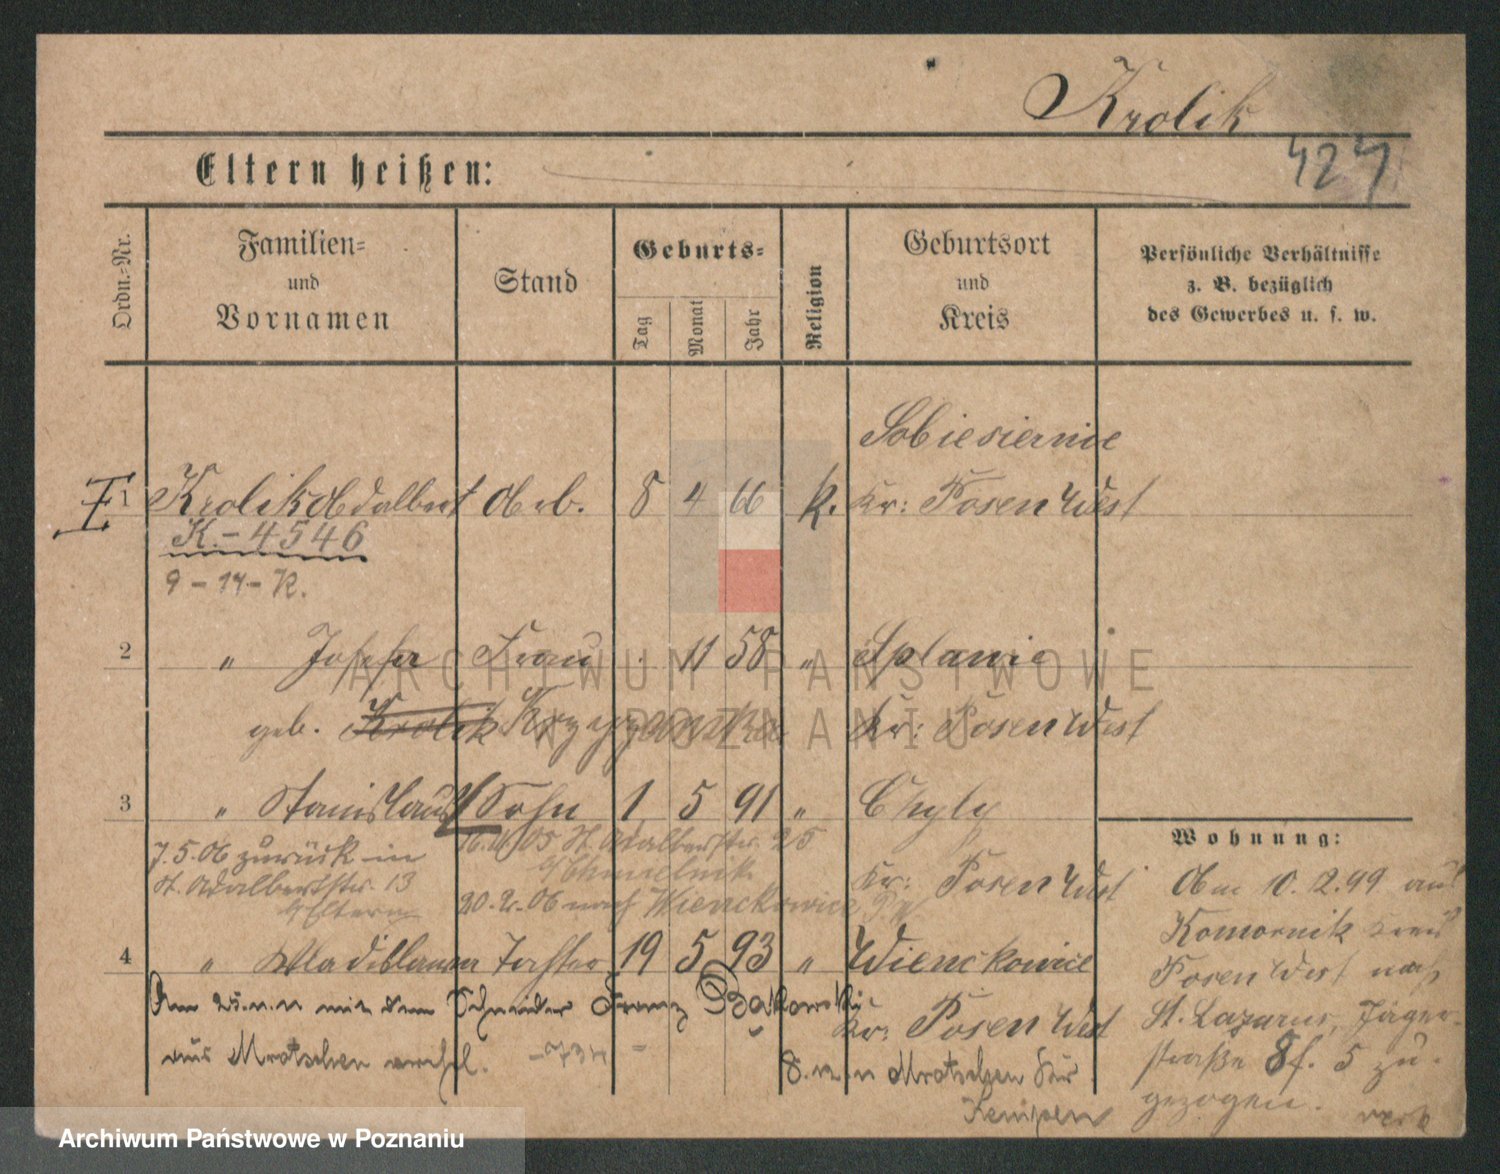 Krolik
427
Eltern heißen:
Ordn.-Nr.
Familien-
und
Vornamen
Stand
Geburts-
Tag
Monat
Jahr
Religion
Geburtsort
und
Kreis
Persönliche Verhältnisse
z. B. bezüglich
des Gewerbes u. s. w.
Sobiesiernie
1 Krolik Adalbert Arb. 8 4 66 k. Kr: Posen West
K.-4546
9-14-K.
2 " Josefa Frau 11 58 " Splawie
geb. Krolik Krzyzanska Kr: Posen West
3 " Stanislaus Sohn 1 5 91 " Chyby
7.5.06 zurück in
St. Adalbertstr. 13
Eltern
05 St. Adalbertstr. 25
Chmielnik
20.2.06 nach Wienckowice P.W
Kr: Posen West
4 " Wladislawa Tochter 19 5 93 " Wienckowice
Am mit dem Schneider Franz Bąkowski
aus Mrotschen verehel.
-734-
Kr: Posen West
Mrotschen
Kempen
Wohnung:
Am 10.12.99 aus
Komornik Kreis
Posen West nach
St. Lazarus, Jäger-
straße 8 f. 5 zu-
gezogen.
ARCHIWUM PAŃSTWOWE
W POZNANIU
Archiwum Państwowe w Poznaniu